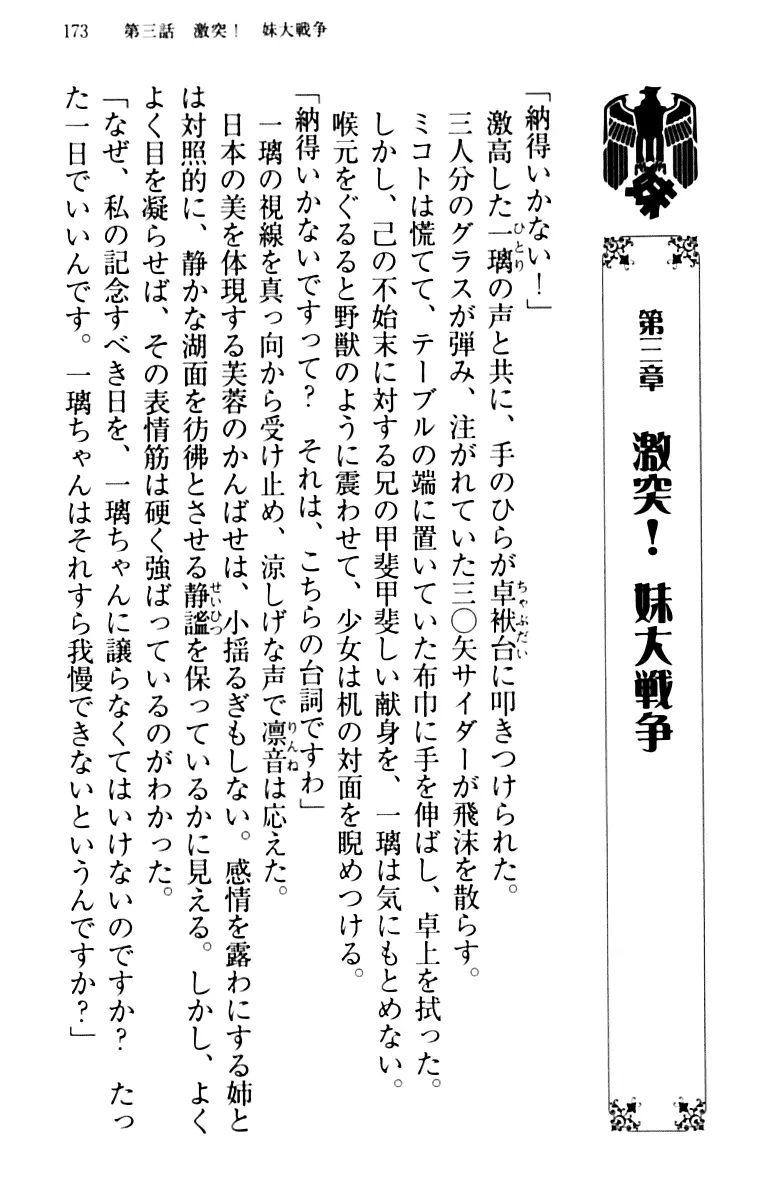 173　第三話　激突！　妹大戦争
第三章　激突！　妹大戦争
「納得いかない！」
　激高した一璃の声と共に、手のひらが卓袱台に叩きつけられた。
　三人分のグラスが弾み、注がれていた三〇矢サイダーが飛沫を散らす。
　ミコトは慌てて、テーブルの端に置いていた布巾に手を伸ばし、卓上を拭った。
　しかし、己の不始末に対する兄の甲斐甲斐しい献身を、一璃は気にもとめない。
　喉元をぐるると野獣のように震わせて、少女は机の対面を睨めつける。
「納得いかないですって？　それは、こちらの台詞ですわ」
　一璃の視線を真っ向から受け止め、涼しげな声で凛音は応えた。
　日本の美を体現する芙蓉のかんばせは、小揺るぎもしない。感情を露わにする姉と
は対照的に、静かな湖面を彷彿とさせる静謐を保っているかに見える。しかし、よく
よく目を凝らせば、その表情筋は硬く強ばっているのがわかった。
「なぜ、私の記念すべき日を、一璃ちゃんに譲らなくてはいけないのですか？　たっ
た一日でいいんです。一璃ちゃんはそれすら我慢できないというんですか？」
ひとり
ちゃぶだい
りんね
せいひつ